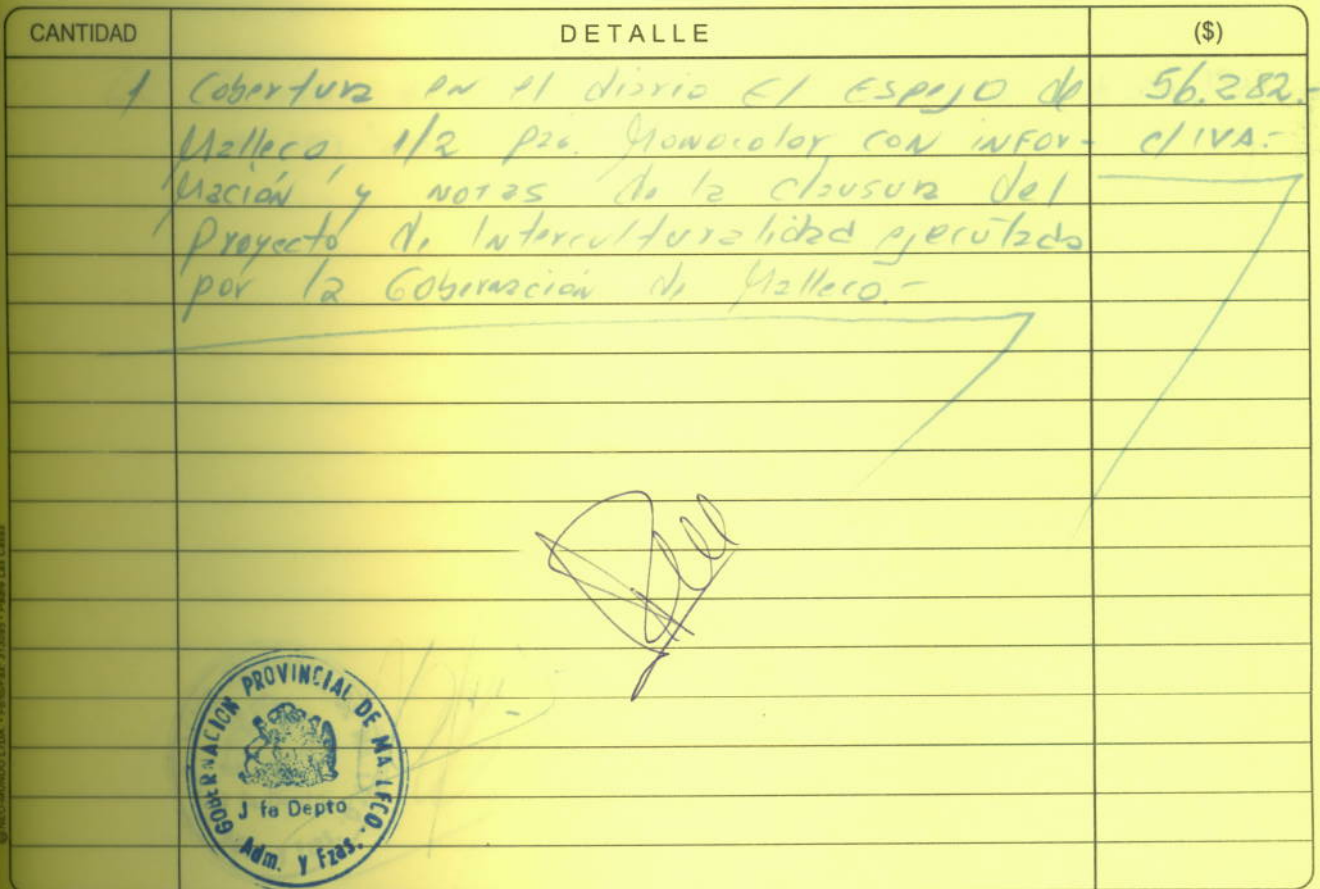 CANTIDAD DETALLE ($)
1 Cobertura en el diario El Espejo de 56.282.-
Malleco, 1/2 pág. Monocolor, con infor- c/IVA.-
mación y notas de la clausura del
Proyecto de Interculturalidad ejecutado
por la Gobernación de Malleco.-
GOBERNACION PROVINCIAL DE MALLECO
J fa Depto
Adm. y Fzas.